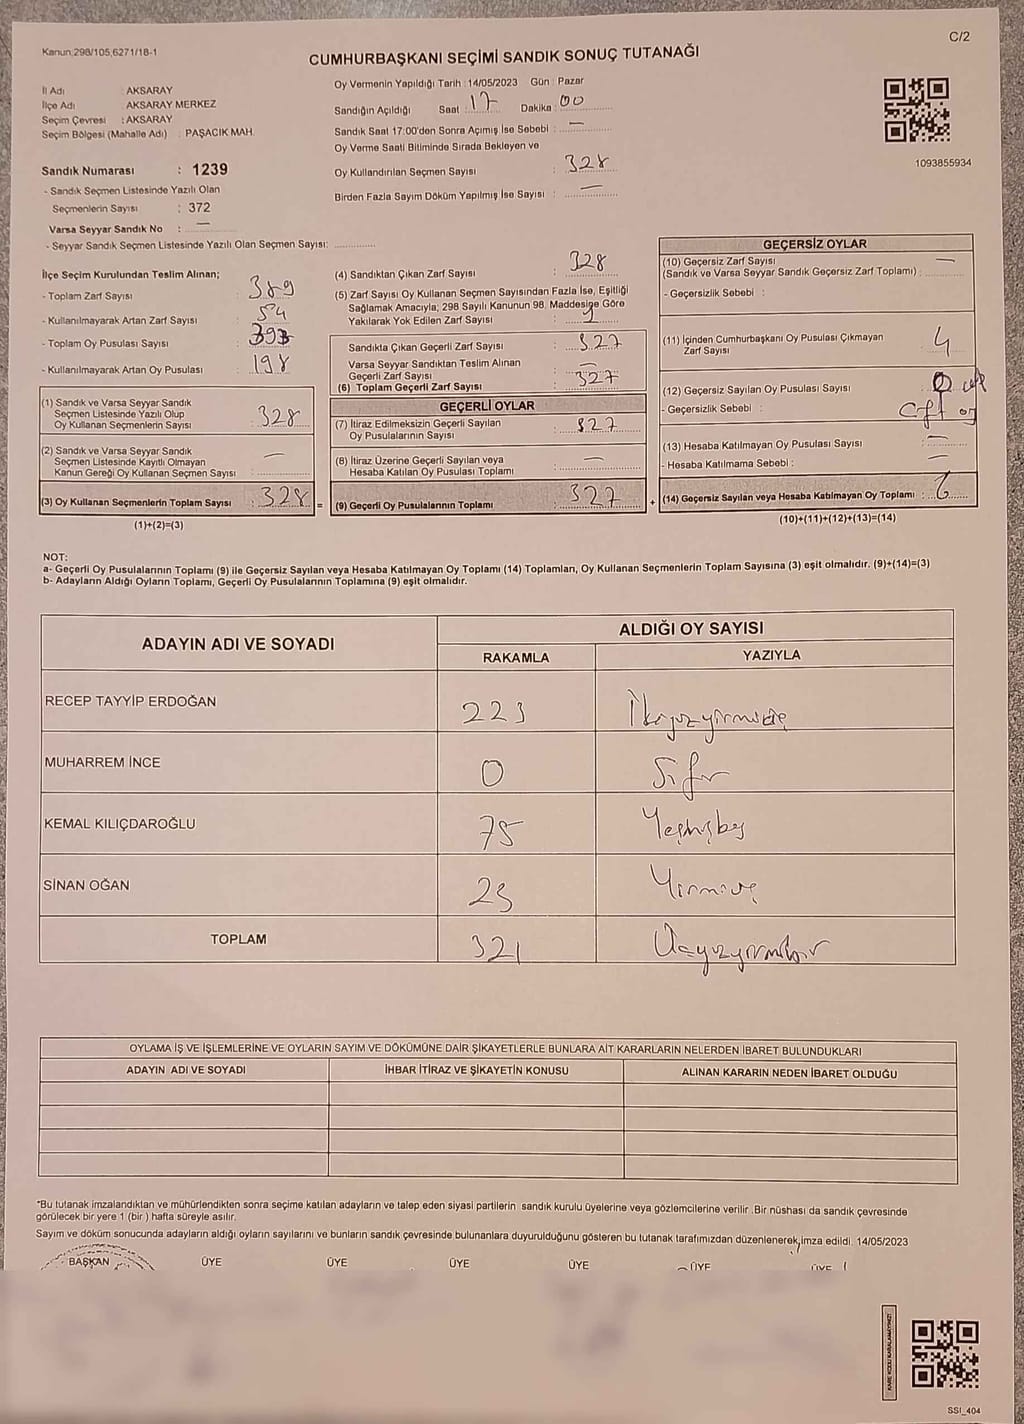 C/2
Kanun,298/105,6271/18-1
CUMHURBAŞKANI SEÇİMİ SANDIK SONUÇ TUTANAĞI
İl Adı : AKSARAY
İlçe Adı AKSARAY MERKEZ
Seçim Çevresi : AKSARAY
Seçim Bölgesi (Mahalle Adı) : PAŞACIK MAH.
Sandık Numarası : 1239
- Sandık Seçmen Listesinde Yazılı Olan
Seçmenlerin Sayısı : 372
Varsa Seyyar Sandık No : —
- Seyyar Sandık Seçmen Listesinde Yazılı Olan Seçmen Sayısı:
Oy Vermenin Yapıldığı Tarih : 14/05/2023 Gün : Pazar
Sandığın Açıldığı Saat : 17 Dakika : 00
Sandık Saat 17:00'den Sonra Açımış İse Sebebi : —
Oy Verme Saati Bitiminde Sırada Bekleyen ve
Oy Kullandırılan Seçmen Sayısı : 328
Birden Fazla Sayım Döküm Yapılmış İse Sayısı : —
1093855934
İlçe Seçim Kurulundan Teslim Alınan;
- Toplam Zarf Sayısı : 389
- Kullanılmayarak Artan Zarf Sayısı : 54
- Toplam Oy Pusulası Sayısı : 393
- Kullanılmayarak Artan Oy Pusulası : 198
(1) Sandık ve Varsa Seyyar Sandık
Seçmen Listesinde Yazılı Olup
Oy Kullanan Seçmenlerin Sayısı : 328
(2) Sandık ve Varsa Seyyar Sandık
Seçmen Listesinde Kayıtlı Olmayan
Kanun Gereği Oy Kullanan Seçmen Sayısı : —
(3) Oy Kullanan Seçmenlerin Toplam Sayısı : 328 =
(1)+(2)=(3)
(4) Sandıktan Çıkan Zarf Sayısı : 328
(5) Zarf Sayısı Oy Kullanan Seçmen Sayısından Fazla İse, Eşitliği
Sağlamak Amacıyla; 298 Sayılı Kanunun 98. Maddesine Göre
Yakılarak Yok Edilen Zarf Sayısı : 1
Sandıkta Çıkan Geçerli Zarf Sayısı : 327
Varsa Seyyar Sandıktan Teslim Alınan
Geçerli Zarf Sayısı : —
(6) Toplam Geçerli Zarf Sayısı : 327
GEÇERLİ OYLAR
(7) İtiraz Edilmeksizin Geçerli Sayılan
Oy Pusulalarının Sayısı : 327
(8) İtiraz Üzerine Geçerli Sayılan veya
Hesaba Katılan Oy Pusulası Toplamı : —
(9) Geçerli Oy Pusulalarının Toplamı : 327 +
GEÇERSİZ OYLAR
(10) Geçersiz Zarf Sayısı —
(Sandık ve Varsa Seyyar Sandık Geçersiz Zarf Toplamı) :
- Geçersizlik Sebebi :
(11) İçinden Cumhurbaşkanı Oy Pusulası Çıkmayan
Zarf Sayısı : 4
(12) Geçersiz Sayılan Oy Pusulası Sayısı :
- Geçersizlik Sebebi : Çift oy
(13) Hesaba Katılmayan Oy Pusulası Sayısı : —
- Hesaba Katılmama Sebebi : —
(14) Geçersiz Sayılan veya Hesaba Katılmayan Oy Toplamı : 6
(10)+(11)+(12)+(13)=(14)
NOT:
a- Geçerli Oy Pusulalarının Toplamı (9) ile Geçersiz Sayılan veya Hesaba Katılmayan Oy Toplamı (14) Toplamları, Oy Kullanan Seçmenlerin Toplam Sayısına (3) eşit olmalıdır. (9)+(14)=(3)
b- Adayların Aldığı Oyların Toplamı, Geçerli Oy Pusulalarının Toplamına (9) eşit olmalıdır.
ADAYIN ADI VE SOYADI
ALDIĞI OY SAYISI
RAKAMLA YAZIYLA
RECEP TAYYİP ERDOĞAN 223 İkiyüzyirmiüç
MUHARREM İNCE 0 Sıfır
KEMAL KILIÇDAROĞLU 75 Yetmişbeş
SİNAN OĞAN 23 Yirmiüç
TOPLAM 321 Üçyüzyirmibir
OYLAMA İŞ VE İŞLEMLERİNE VE OYLARIN SAYIM VE DÖKÜMÜNE DAİR ŞİKAYETLERLE BUNLARA AİT KARARLARIN NELERDEN İBARET BULUNDUKLARI
ADAYIN ADI VE SOYADI İHBAR İTİRAZ VE ŞİKAYETİN KONUSU ALINAN KARARIN NEDEN İBARET OLDUĞU
*Bu tutanak imzalandıktan ve mühürlendikten sonra seçime katılan adayların ve talep eden siyasi partilerin sandık kurulu üyelerine veya gözlemcilerine verilir .Bir nüshası da sandık çevresinde
görülecek bir yere 1 (bir ) hafta süreyle asılır.
Sayım ve döküm sonucunda adayların aldığı oyların sayılarını ve bunların sandık çevresinde bulunanlara duyurulduğunu gösteren bu tutanak tarafımızdan düzenlenerek,imza edildi. 14/05/2023
BAŞKAN ÜYE ÜYE ÜYE ÜYE ÜYE ÜYE
KARE KODU KARALAMAYINIZ!
SSI_404